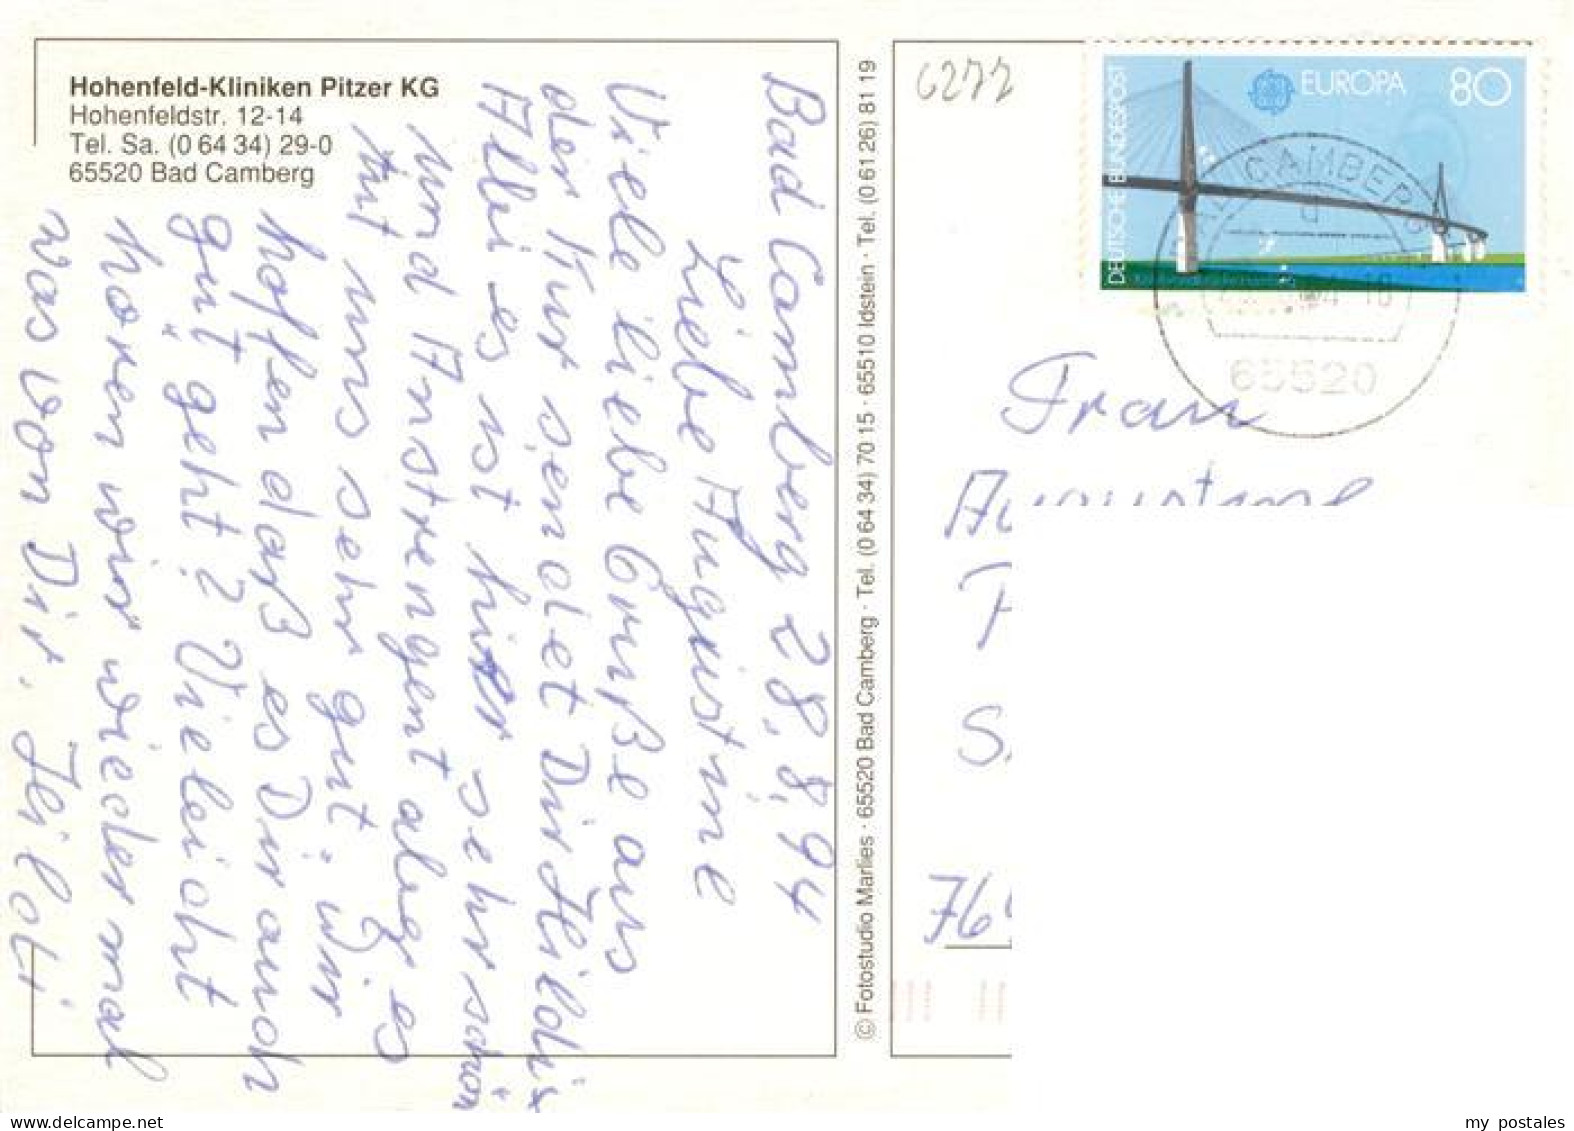 Hohenfeld-Kliniken Pitzer KG
Hohenfeldstr. 12-14
Tel. Sa. (0 64 34) 29-0
65520 Bad Camberg
Bad Camberg 28.8.94
Liebe Augustine
Viele liebe Grüße aus
der Kur sendet Dir Hildix
Albi es ist hier sehr schön
und Anstrengent aber es
tut uns sehr gut. Wir
hoffen daß es Dir auch
gut geht? Vieleicht
hören wir wieder mal
was von Dir.
© Fotostudio Marlies · 65520 Bad Camberg · Tel. (0 64 34) 70 15 · 65510 Idstein · Tel. (0 61 26) 81 19
6277
DEUTSCHE BUNDESPOST
EUROPA 80
BAD CAMBERG
65520
Frau
Augustine
my postales
www.delcampe.net